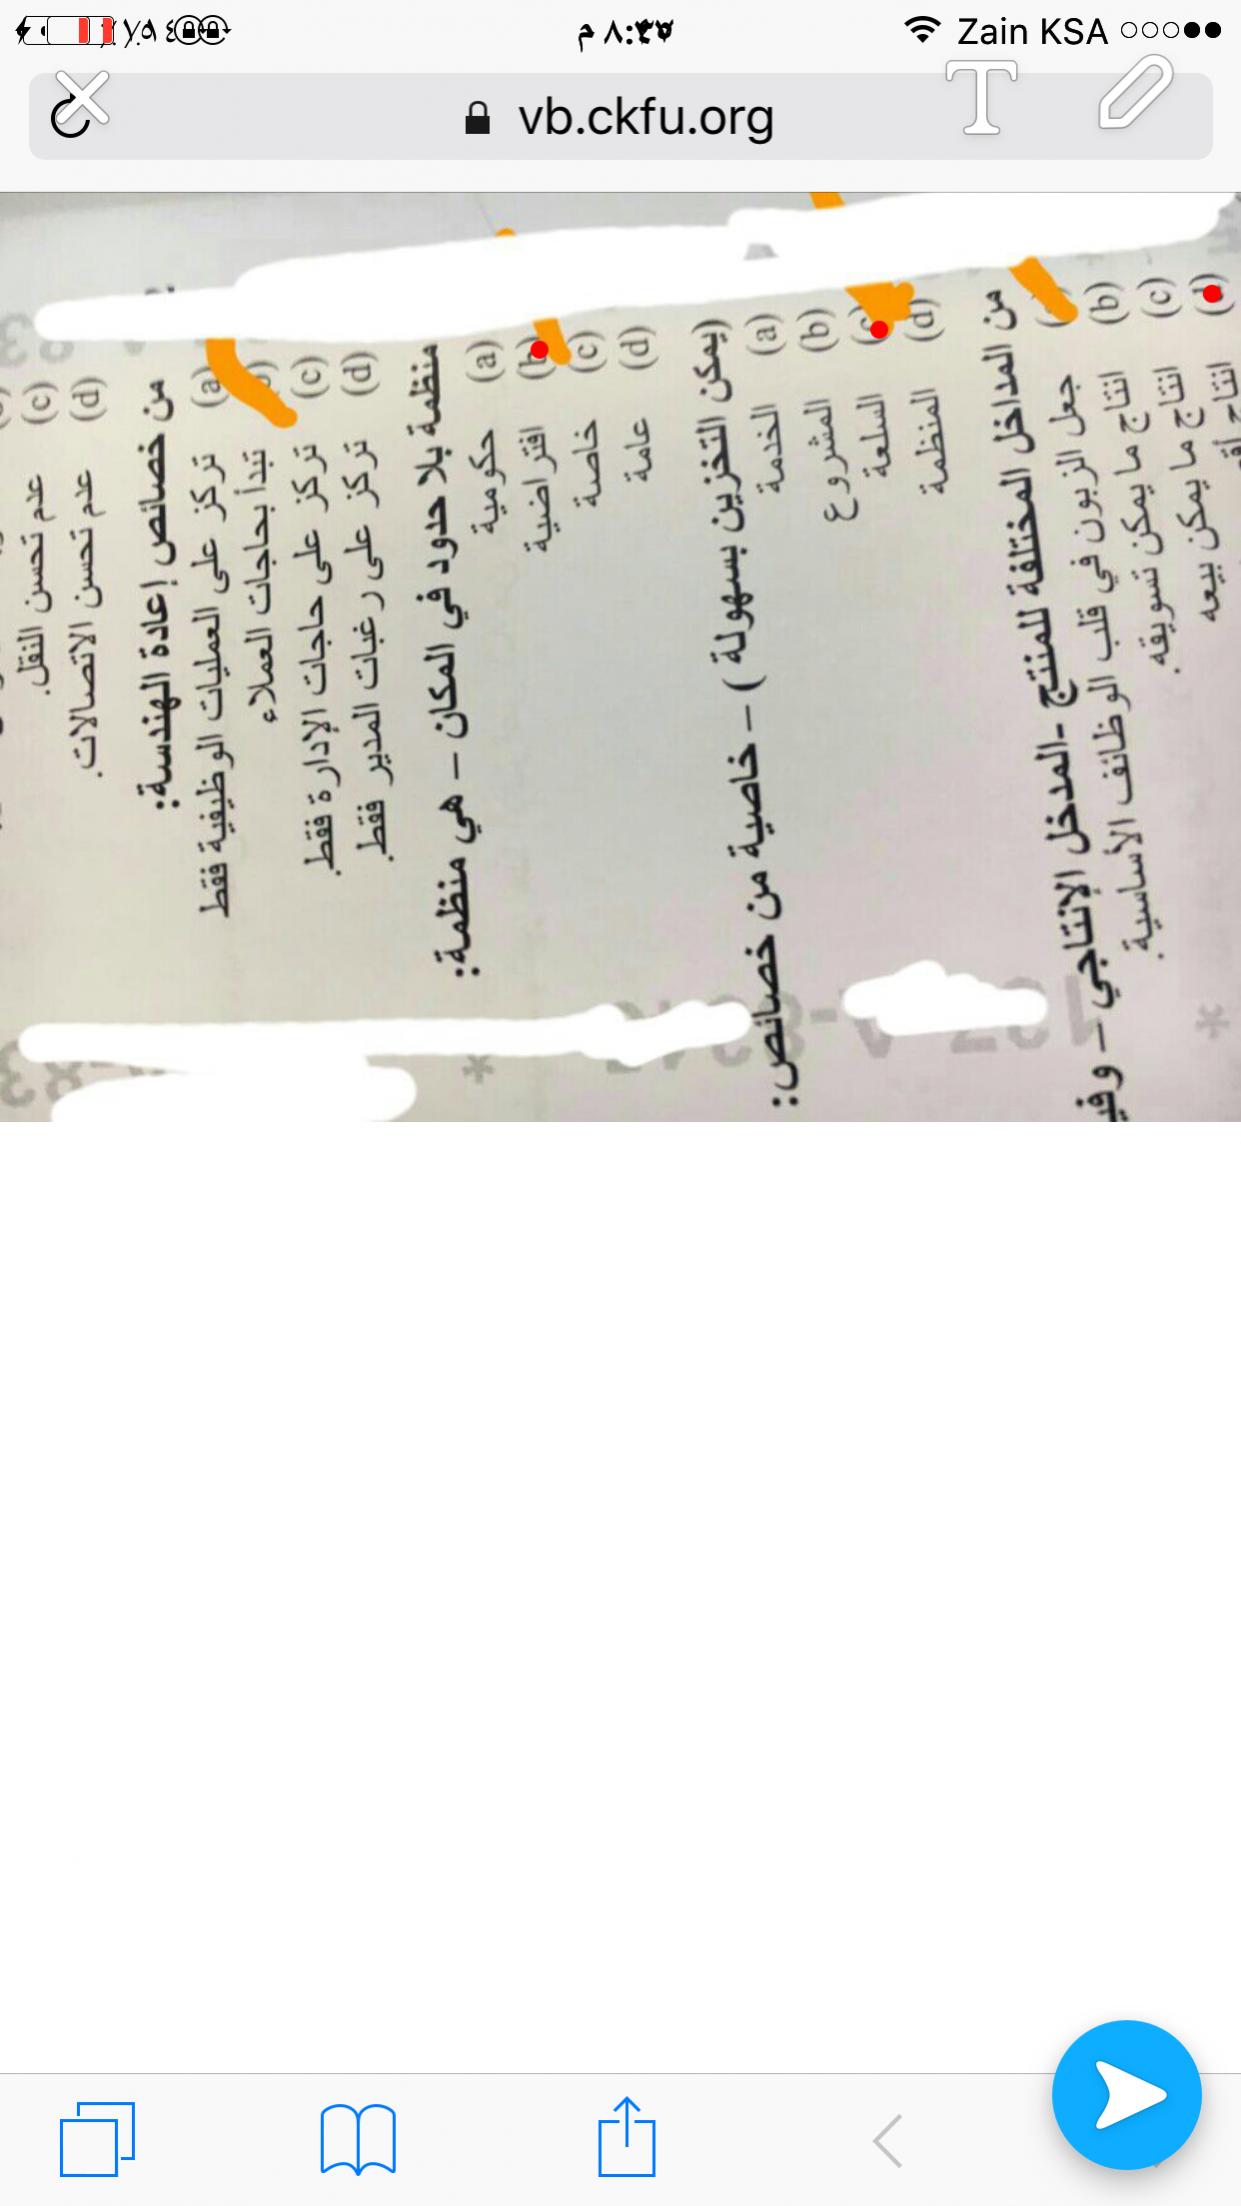 ٨:٣٥ م
Zain KSA
vb.ckfu.org
T
(c) عدم تحسن النقل.
(d) عدم تحسن الاتصالات.
من خصائص إعادة الهندسة:
(a) تركز على العمليات الوظيفية فقط
تبدأ بحاجات العملاء
(c) تركز على حاجات الإدارة فقط.
(d) تركز على رغبات المدير فقط.
منظمة بلا حدود في المكان – هي منظمة:
(a) حكومية
(b) افتراضية
(c) خاصة
(d) عامة
(يمكن التخزين بسهولة ) – خاصية من خصائص:
(a) الخدمة
(b) المشروع
(c) السلعة
(d) المنظمة
من المداخل المختلفة للمنتج -المدخل الإنتاجي –
جعل الزبون في قلب الوظائف الأساسية.
(b) انتاج ما يمكن تسويقه.
(c) انتاج ما يمكن بيعه
(d) انتاج